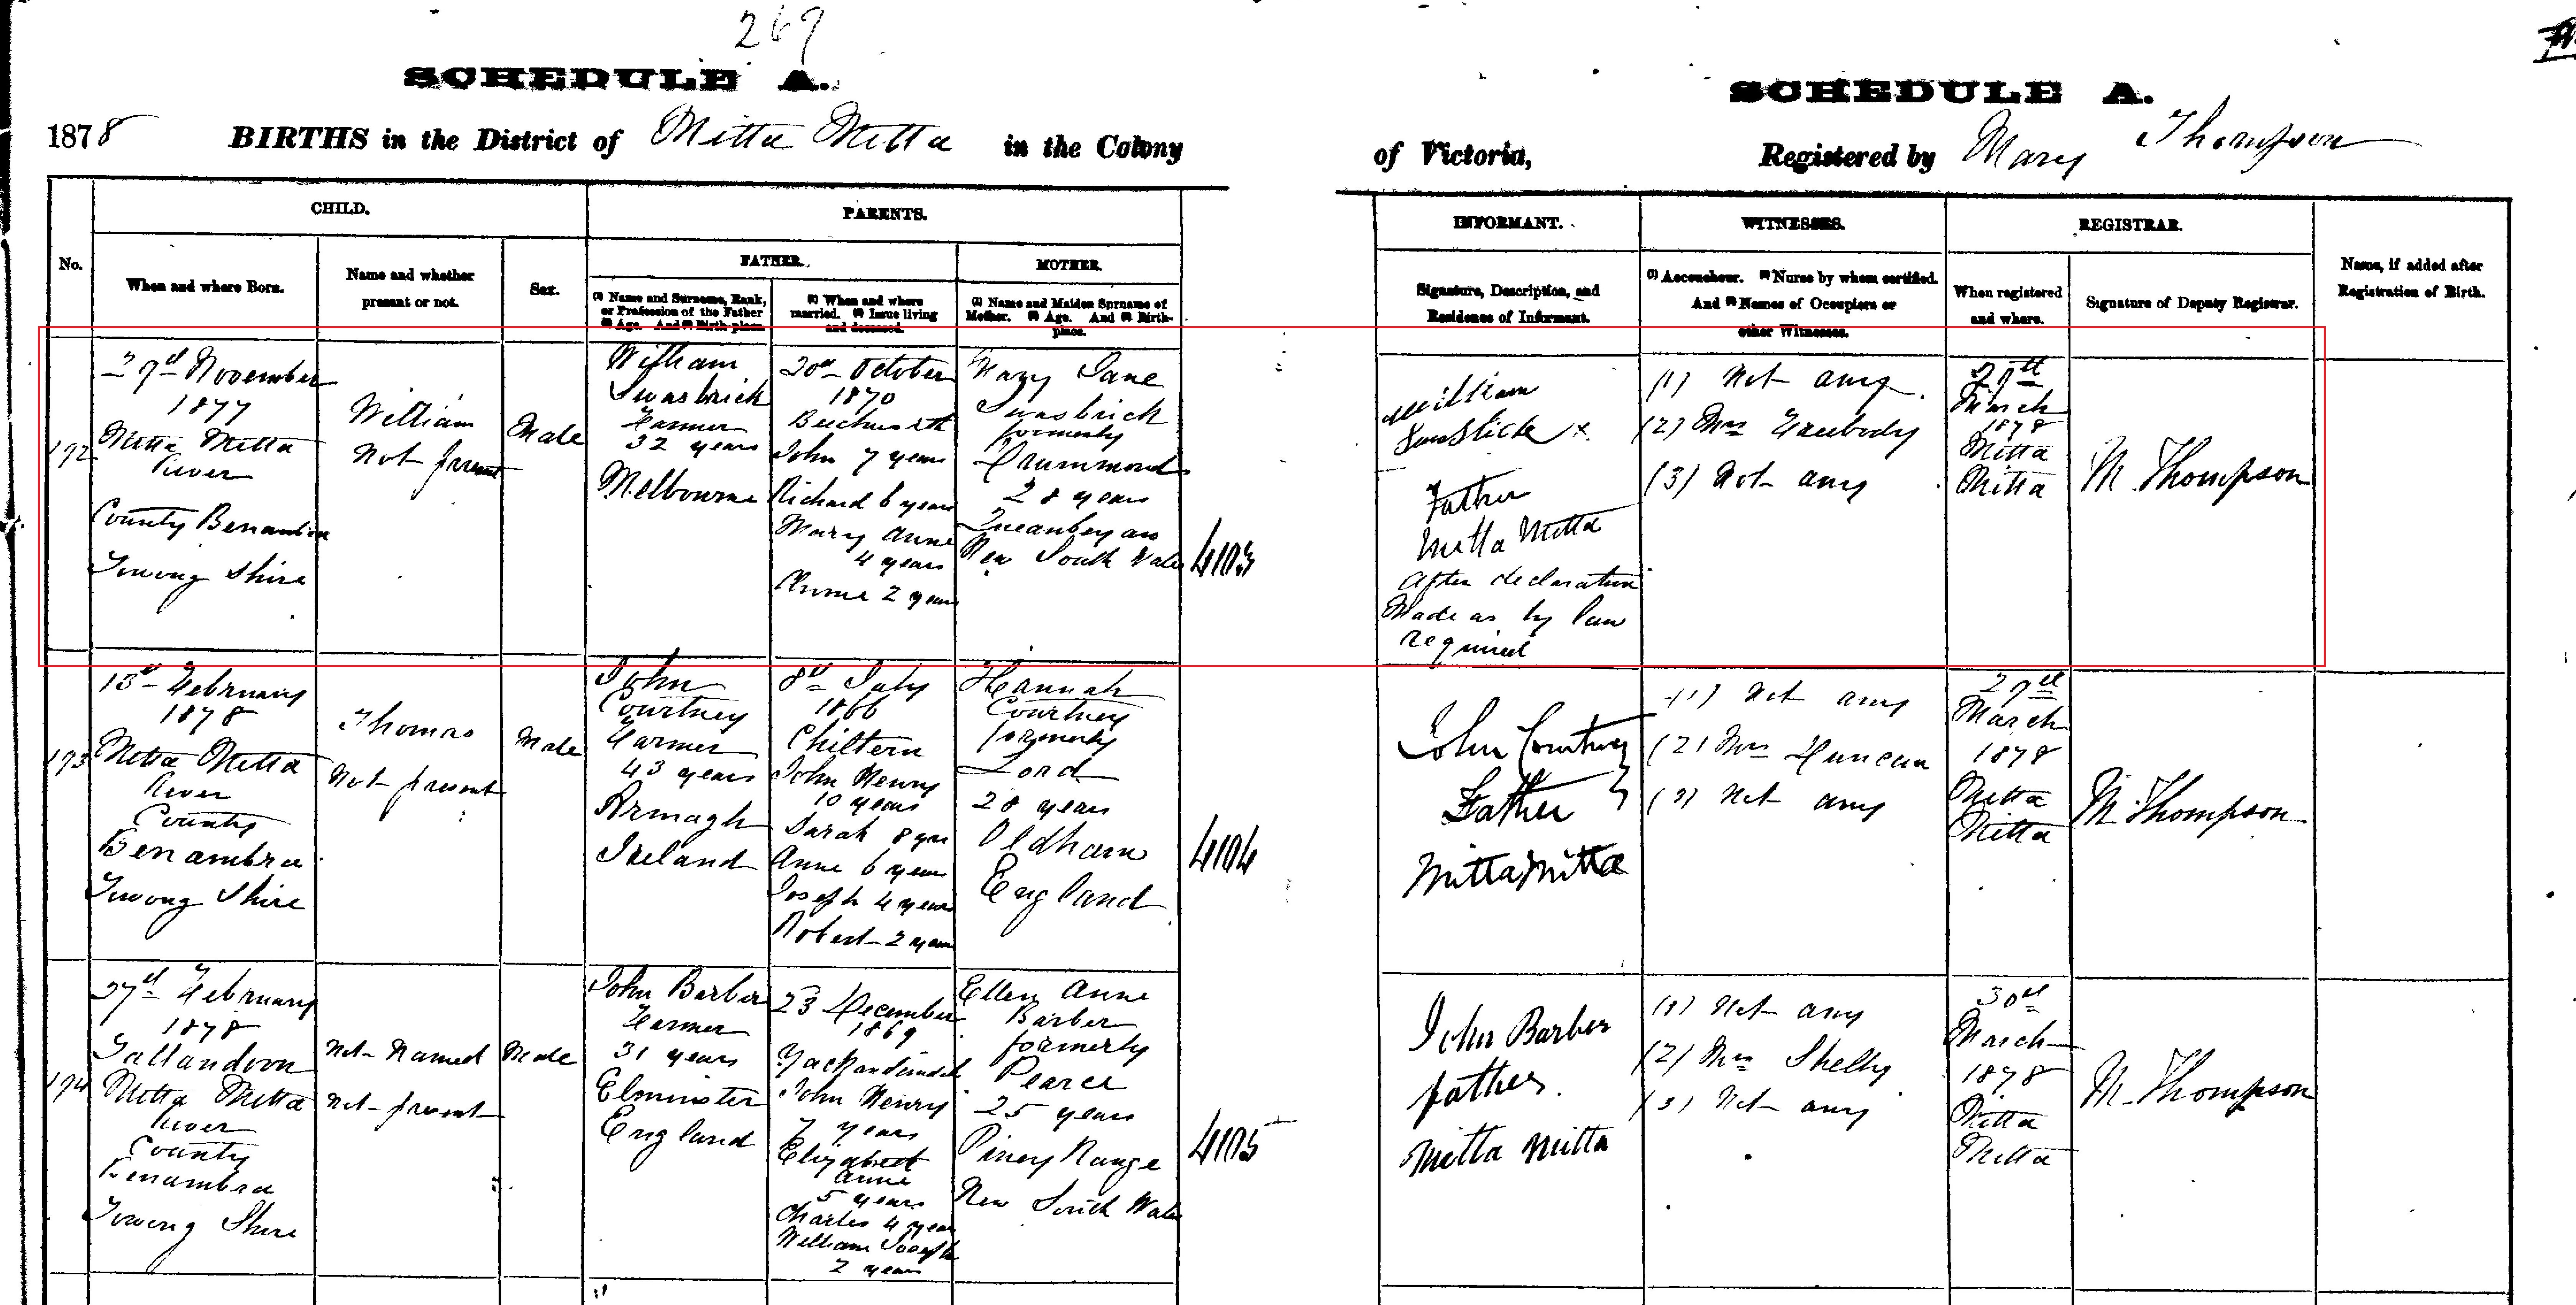 269
SCHEDULE A.
1878 BIRTHS in the District of Mitta Mitta in the Colony
No.
CHILD.
When and where Born.
Name and whether
present or not.
Sex.
PARENTS.
FATHER.
(1) Name and Surname, Rank,
or Profession of the Father
(2) Age. And (3) Birth-place.
(1) When and where
married. (2) Issue living
and deceased.
MOTHER.
(1) Name and Maiden Surname of
Mother. (2) Age. And (3) Birth-
place.
192
27th November
1877
Mitta Mitta
River
County Benambra
Towong Shire
William
Not present
Male
William
Swasbrick
Farmer
32 years
Melbourne
20th October
1870
Beechworth
John 7 years
Richard 6 years
Mary Anne
4 years
Anne 2 years
Mary Jane
Swasbrick
formerly
Drummond
28 years
Queanbeyan
New South Wales
4103
193
13th February
1878
Mitta Mitta
River
County
Benambra
Towong Shire
Thomas
Not present
Male
John
Courtney
Farmer
43 years
Armagh
Ireland
8th July
1866
Chiltern
John Henry
10 years
Sarah 8 yrs
Anne 6 years
Joseph 4 years
Robert 2 years
Hannah
Courtney
formerly
Lord
28 years
Oldham
England
4104
194
27th February
1878
Tallandoon
Mitta Mitta
River
County
Benambra
Towong Shire
Not Named
Not present
Male
John Barber
Farmer
31 years
Elminster
England
23 December
1869
Yackandandah
John Henry
7 years
Elizabeth
Anne
5 years
Charles 4 years
William Joseph
2 years
Ellen Anne
Barber
formerly
Pearce
25 years
Piney Range
New South Wales
4105
SCHEDULE A.
of Victoria, Registered by Mary Thompson
INFORMANT.
Signature, Description, and
Residence of Informant.
WITNESSES.
(1) Accoucheur. (2) Nurse by whom certified.
And (3) Names of Occupiers or
other Witnesses.
REGISTRAR.
When registered
and where.
Signature of Deputy Registrar.
Name, if added after
Registration of Birth.
William
x
Father
Mitta Mitta
After declaration
Made as by law
required
(1) Not any
(2) Mrs
(3) Not any
27th
March
1878
Mitta
Mitta
M Thompson
John Courtney
Father
Mitta Mitta
(1) Not any
(2) Mrs Duncan
(3) Not any
27th
March
1878
Mitta
Mitta
M. Thompson
John Barber
father.
Mitta Mitta
(1) Not any
(2) Mrs Shelly
(3) Not any
30th
March
1878
Mitta
Mitta
M. Thompson